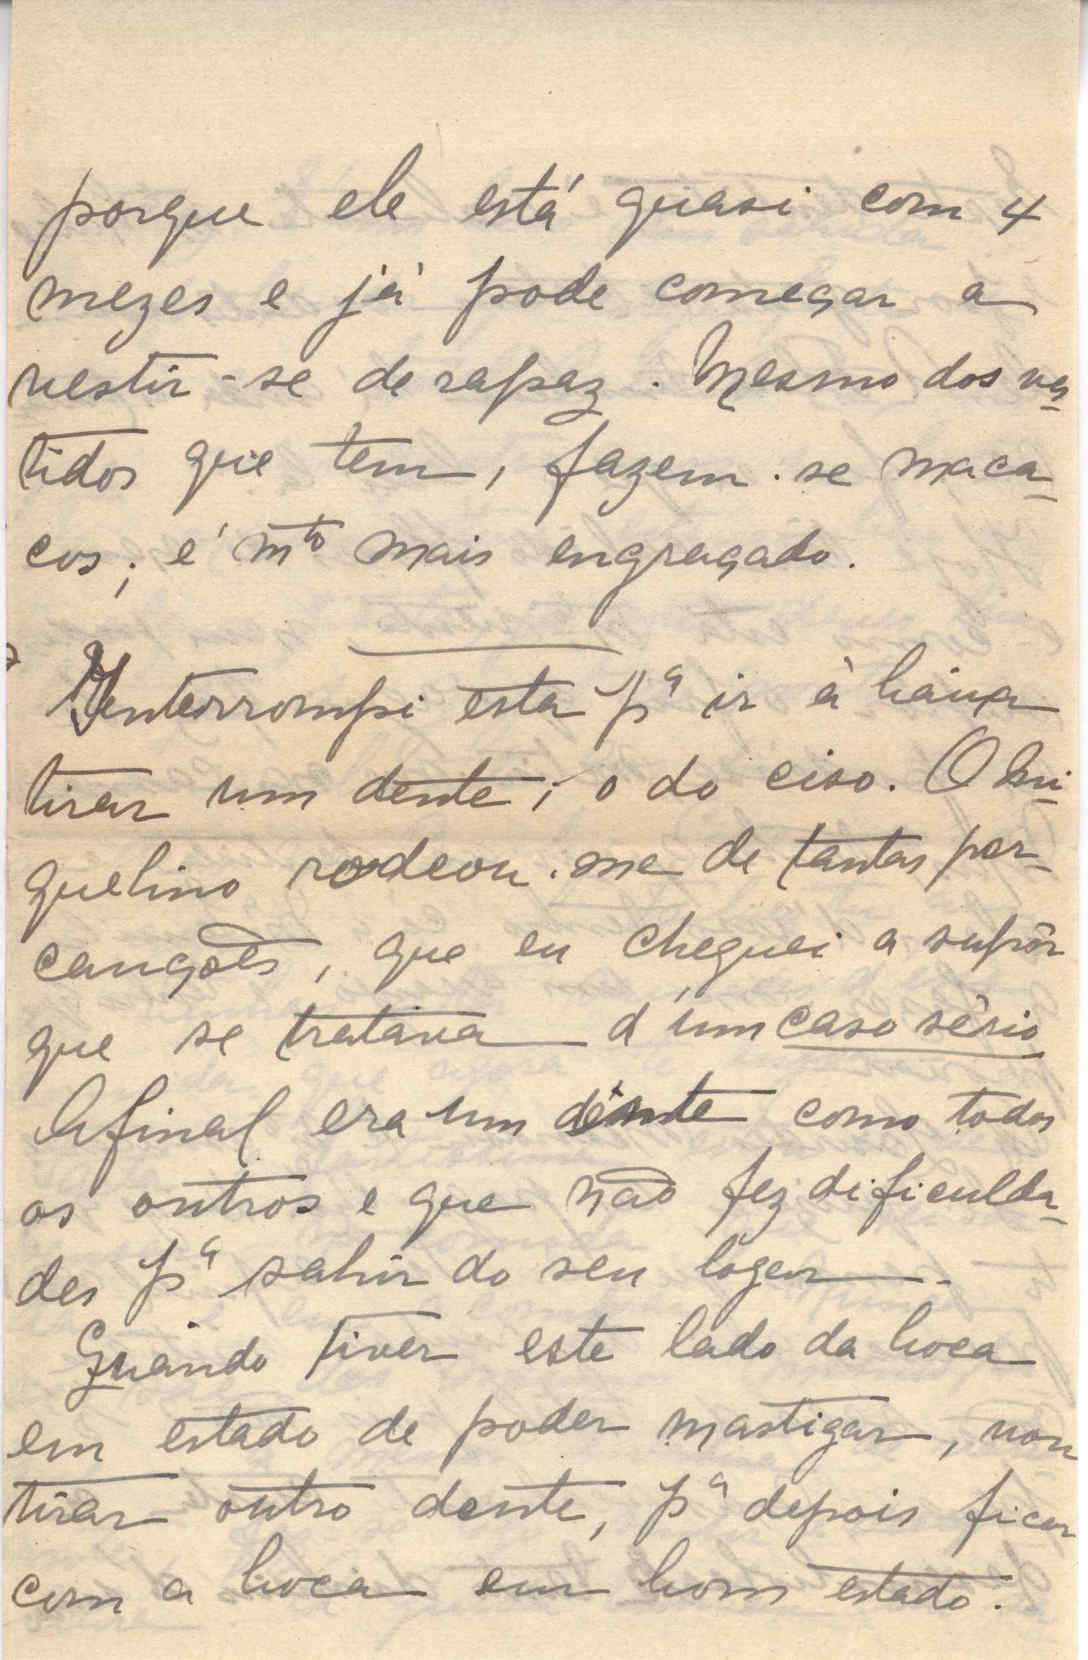 porque ele está quasi com 4
mezes e já pode começar a
vestir-se de rapaz. Mesmo dos ves-
tidos que tem, fazem-se maca-
cos; é mto mais engraçado.
Interrompi esta pa ir à baixa
tirar um dente; o do ciso. O Mi-
quelino rodeou-me de tantas per-
cauções, que eu cheguei a supôr
que se tratava d'um caso sério
Afinal era um dente como todos
os outros e que não fez dificulda-
des pa sahir do seu lógar.
Quando tiver este lado da boca
em estado de poder mastigar, vou
tirar outro dente, pa depois ficar
com a boca em bom estado.